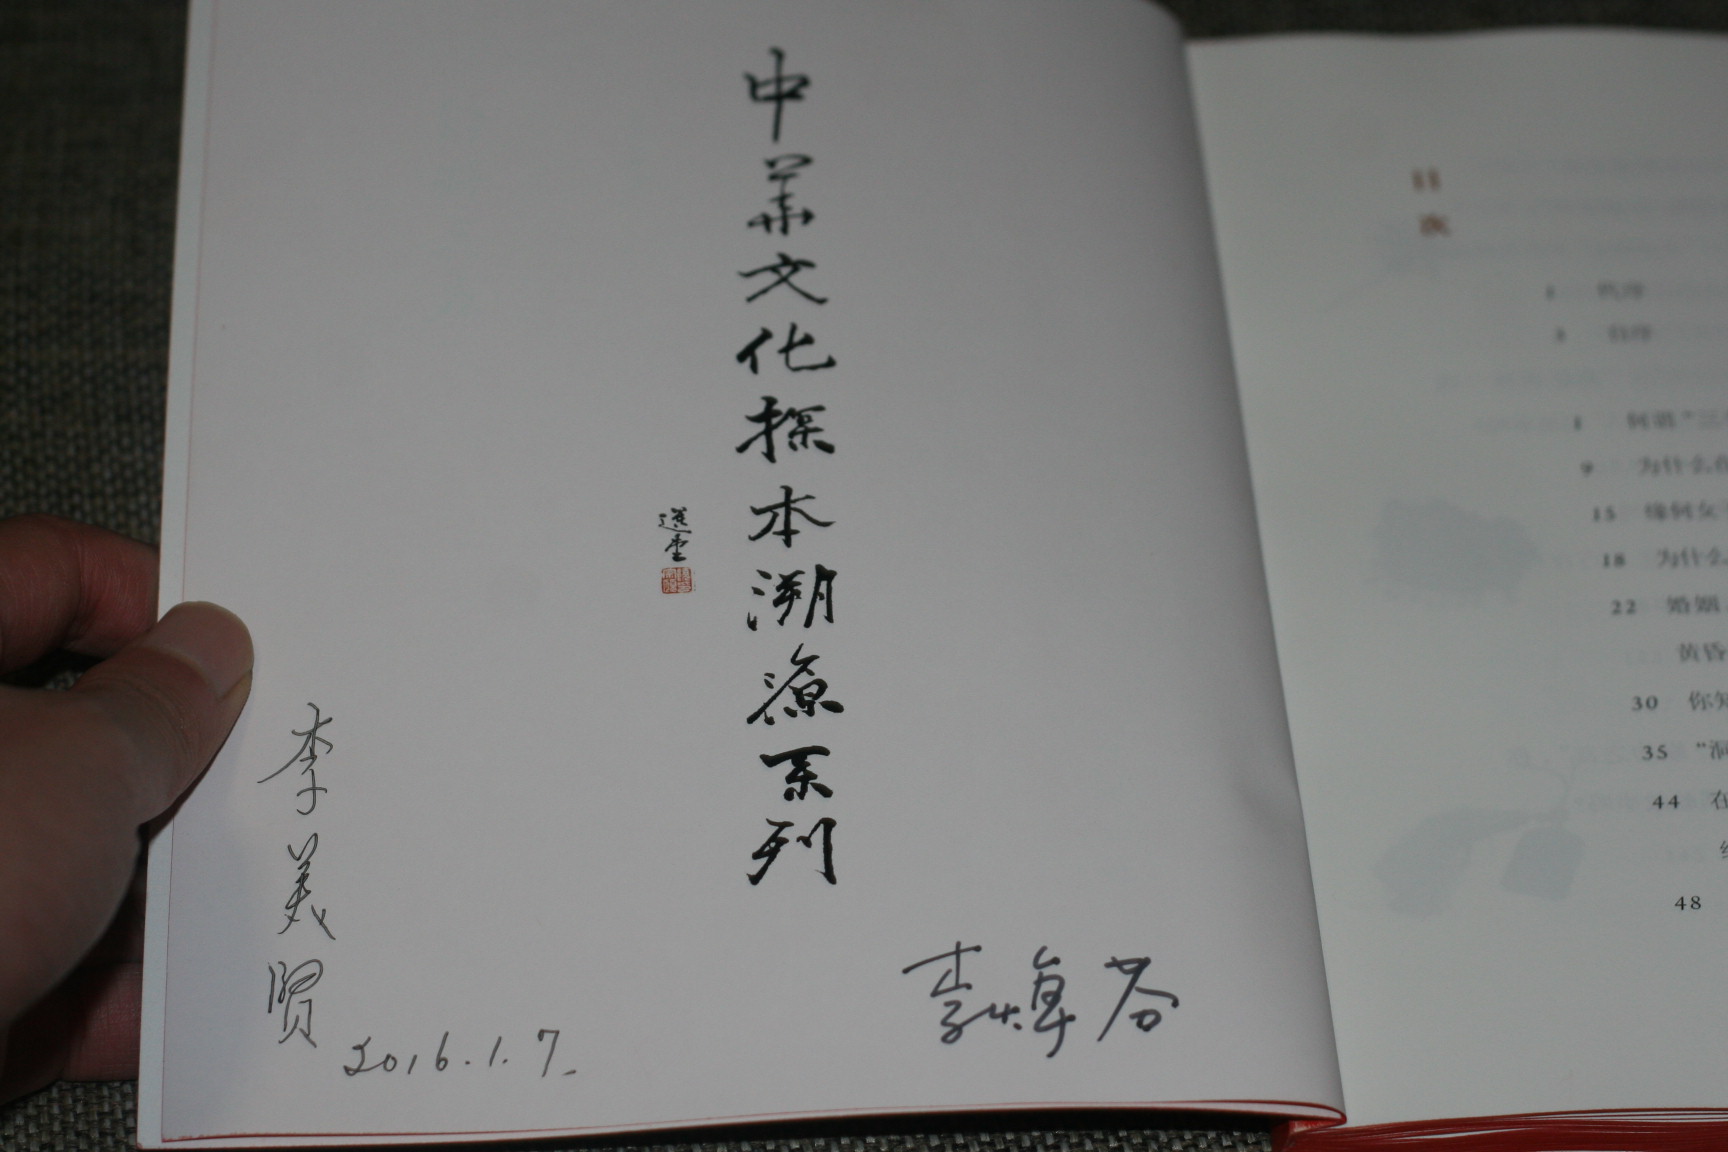 中華文化探本溯源系列
選堂
李美贤
2016.1.7.
李焯芬
目
次
1 代序
3 自序
1 何谓“三
9 为什么在
15 缘何女
18 为什么
22 婚姻
黄昏
30 你知
35 “洞
44 在
48